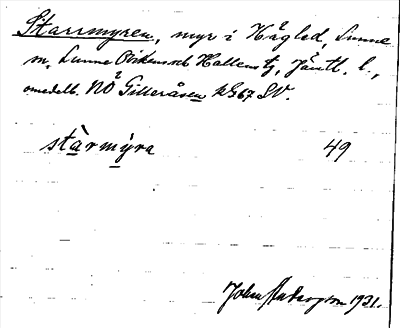 Starrmyren, myr i Hågled, Sunne
m. Sunne Ovikens o. Hallens tg, Jämtl. l.,
omedelb. NÖ Gilleråsen K 567 SV.
starmyra 49
John Anderzon 1931.